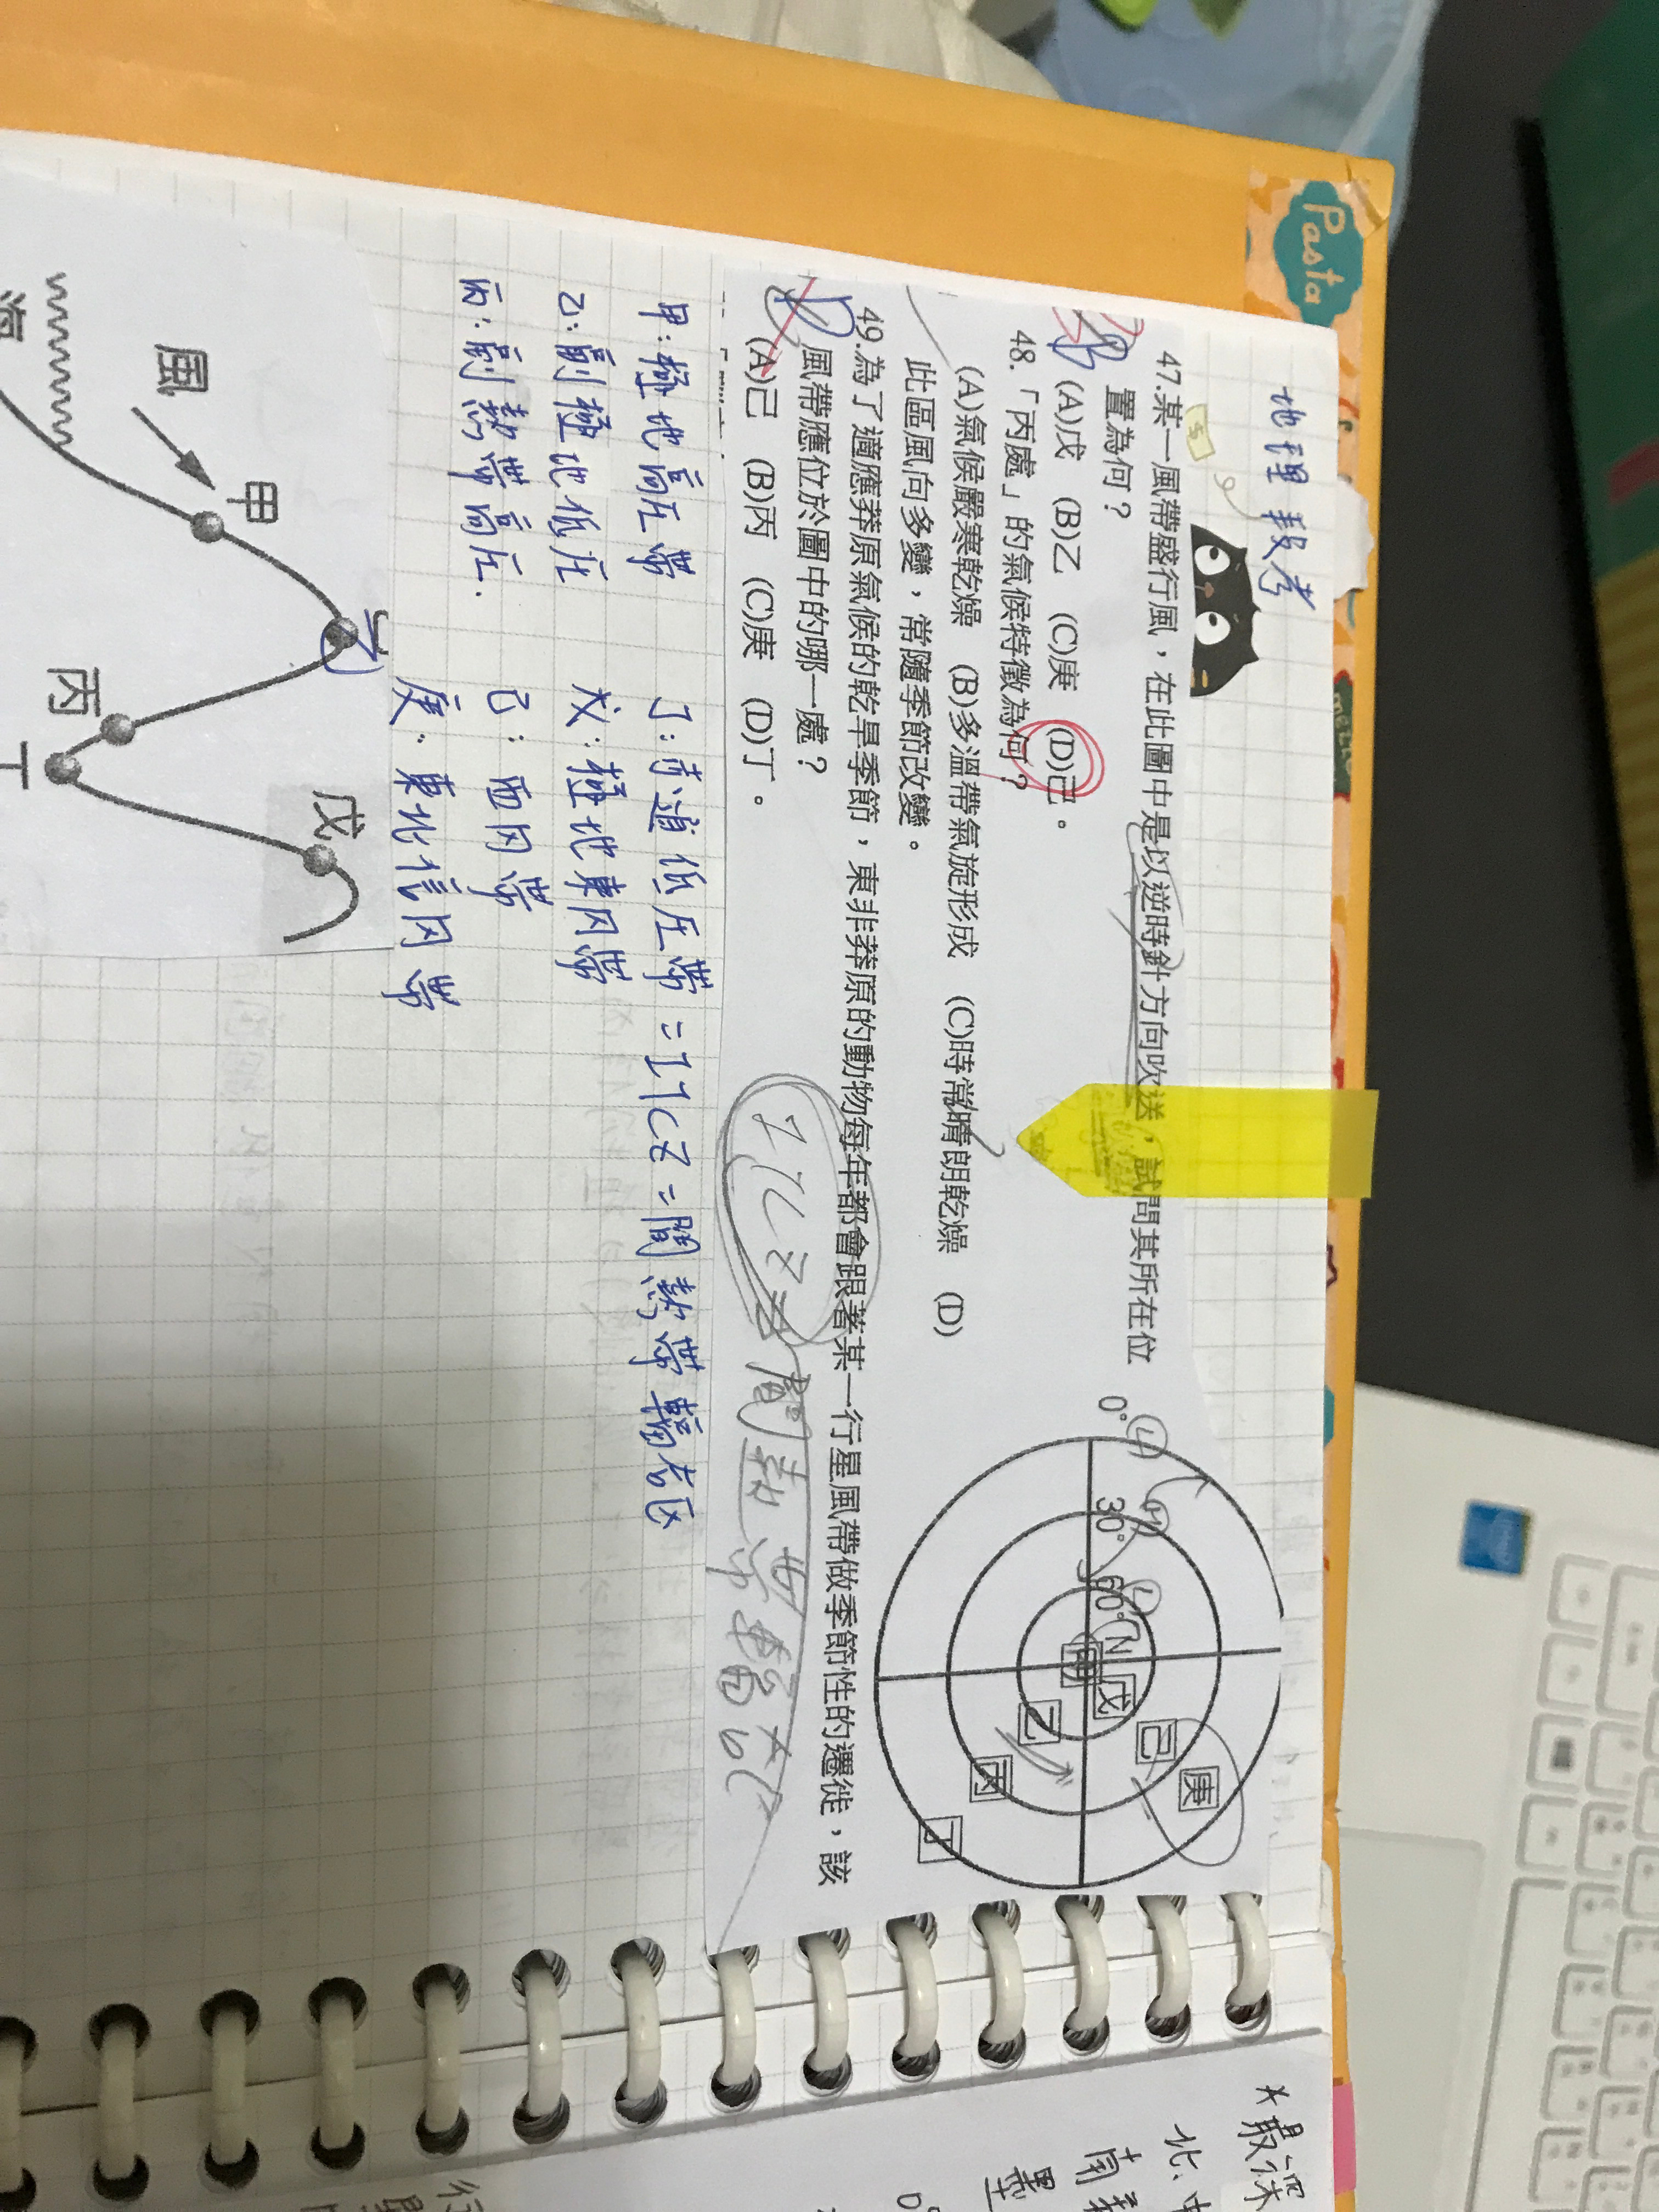 Pasta
地理段考
47.某一風帶盛行風，在此圖中是以逆時針方向吹送，試問其所在位
置為何？
(A)戊 (B)乙 (C)庚 (D)己。
48.「丙處」的氣候特徵為何？
(A)氣候嚴寒乾燥 (B)多溫帶氣旋形成 (C)時常晴朗乾燥 (D)
此區風向多變，常隨季節改變。
49.為了適應莽原氣候的乾旱季節，東非莽原的動物每年都會跟著某一行星風帶做季節性的遷徙，該
風帶應位於圖中的哪一處？
(A)己 (B)丙 (C)庚 (D)丁。
0°
30°
60°N
甲
戊
己
庚
乙
丙
丁
ITCZ 間熱帶輻合區
甲：極地高压帶
乙：副極地低压
丙：副熱帶高压.
丁：赤道低压帶=ITCZ=間熱帶輻合区
戊：極地東风帶
己：西风帶
庚．東北信风帶
風
甲
乙
丙
丁
戊
海
*最深
北、